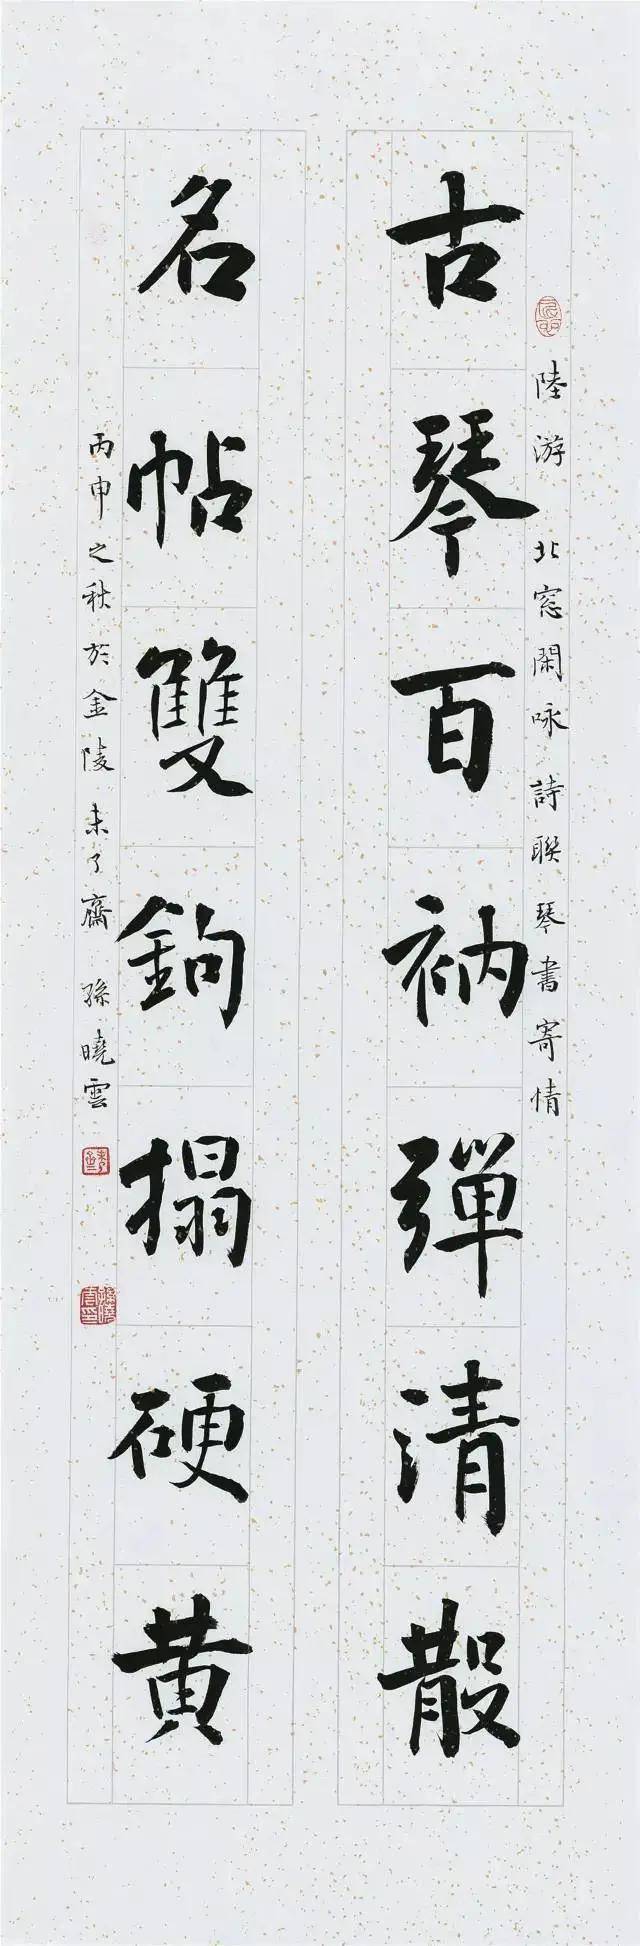 陸游 北窓閑咏 詩聯琴書寄情
古琴百衲彈清散
名帖雙鉤搨硬黄
丙申之秋於金陵未了齋 孫曉雲